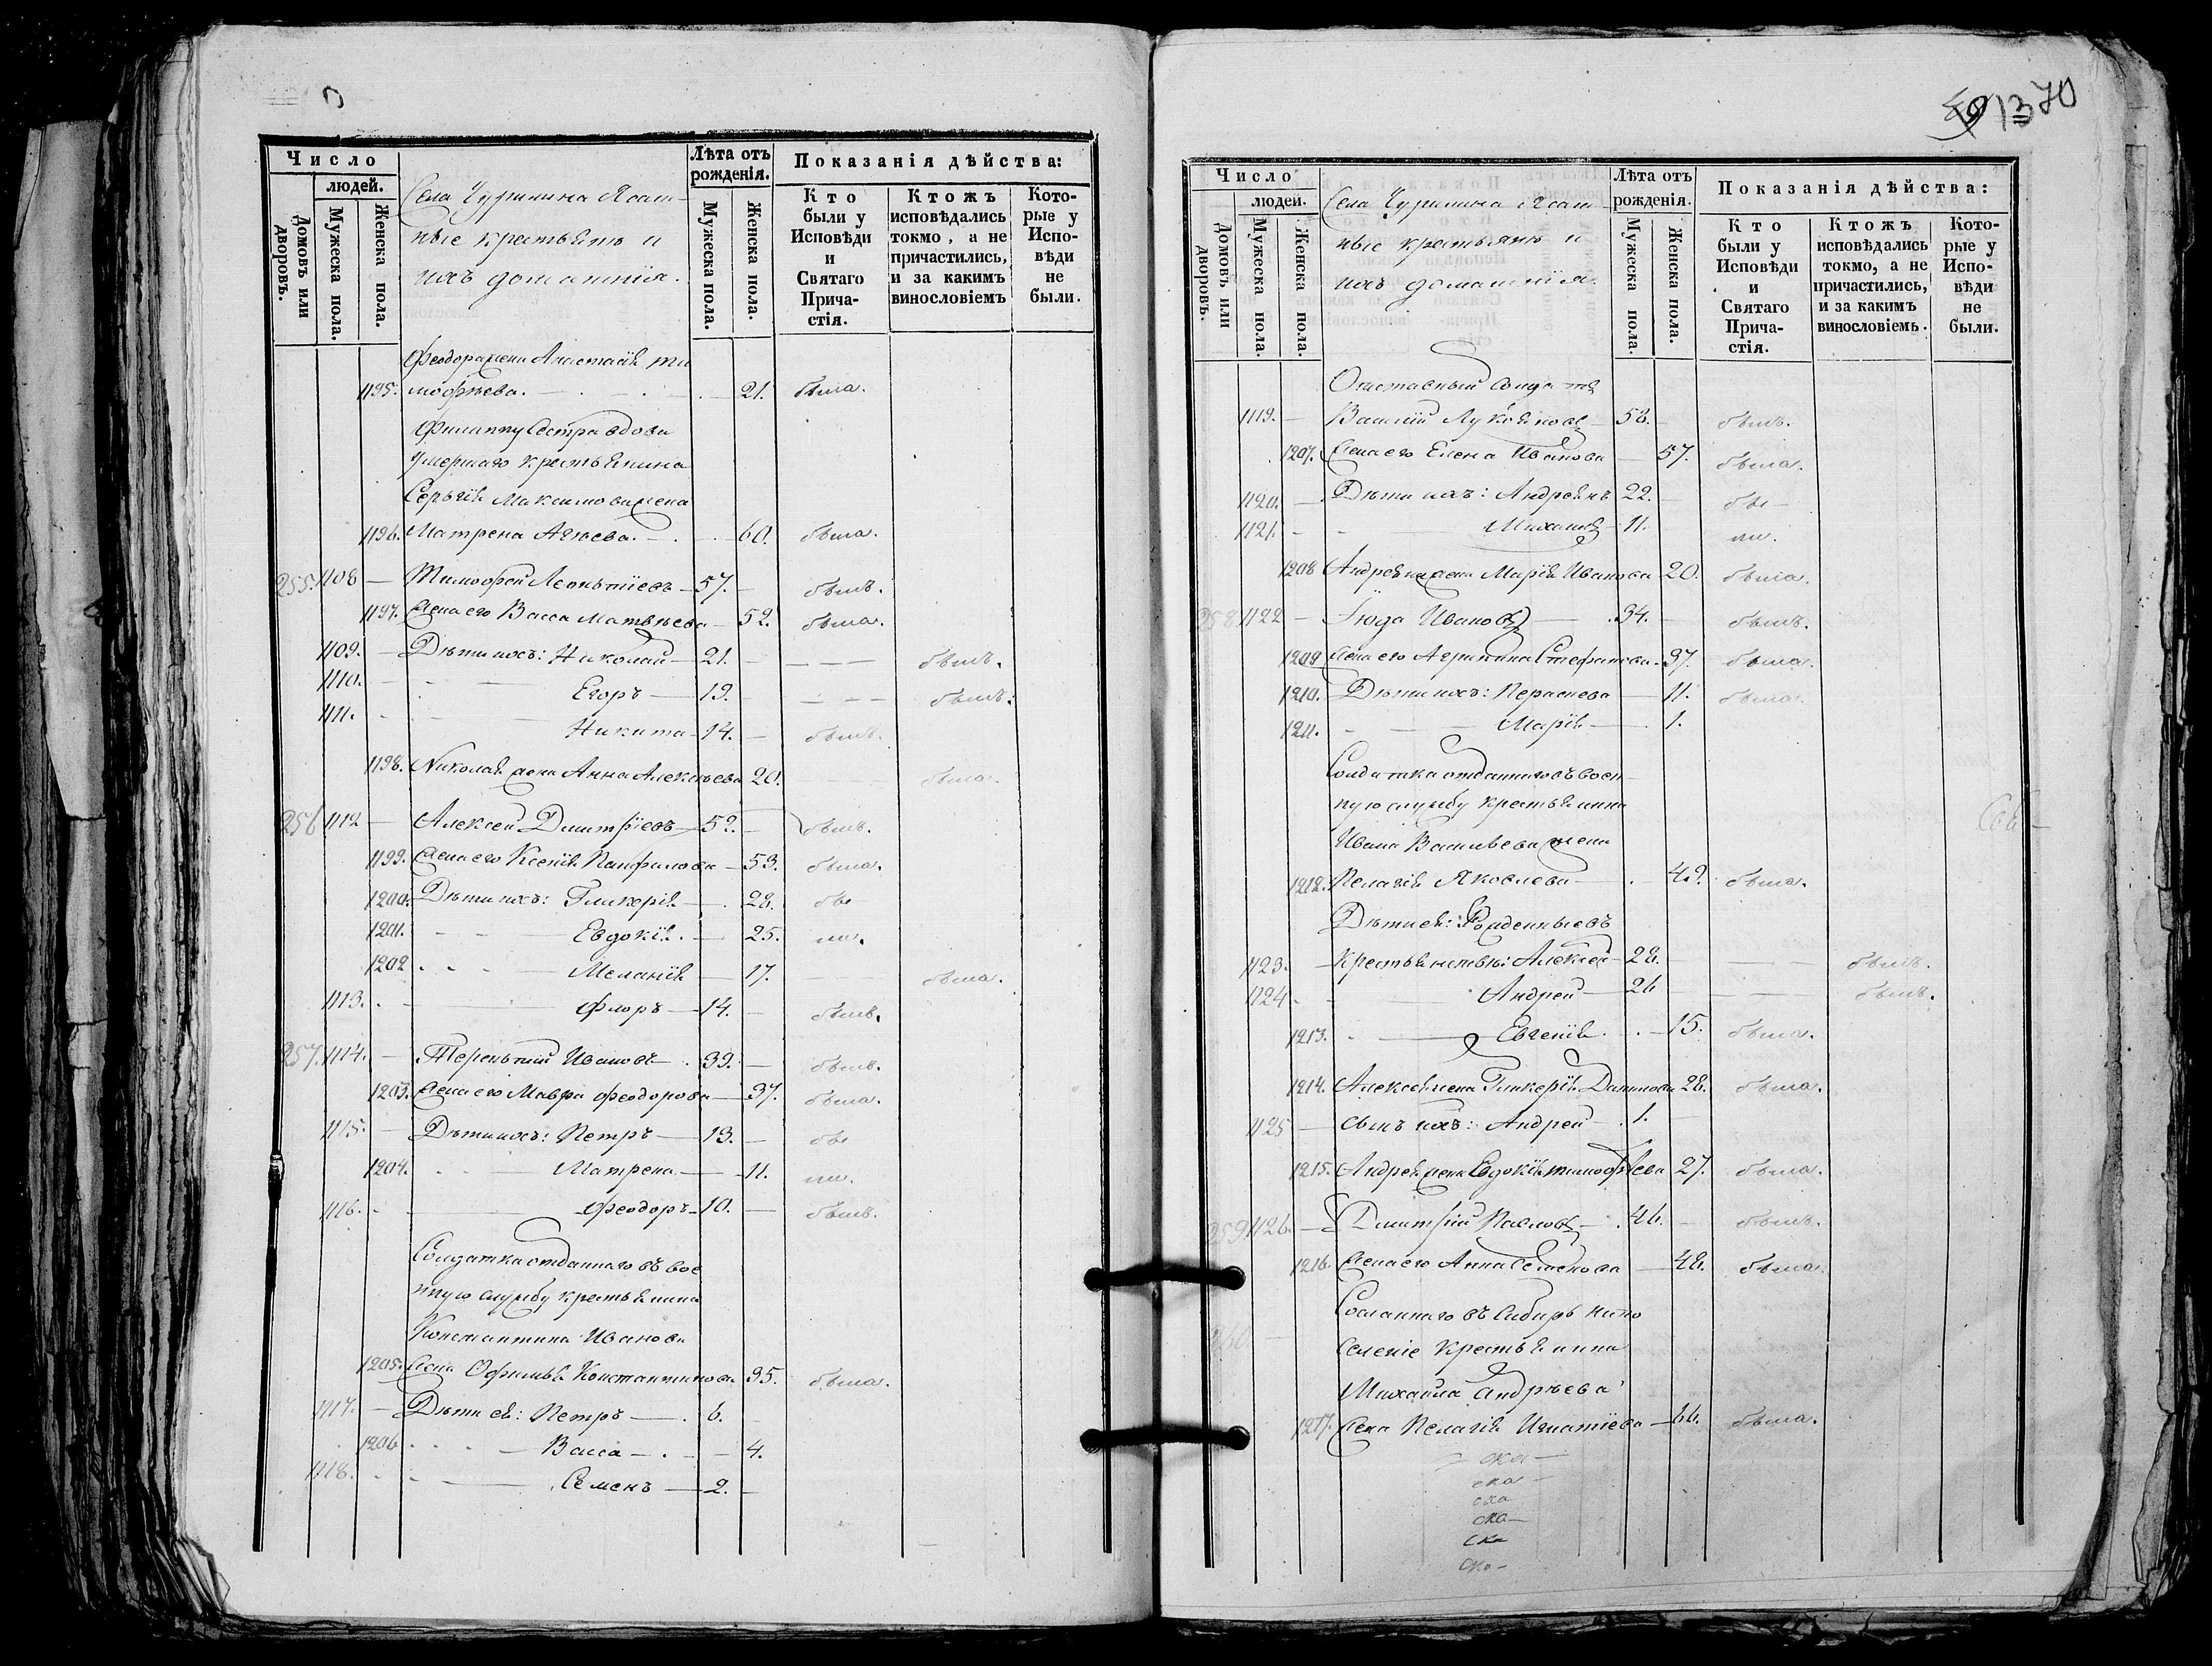 Число
людей.
Домовъ или дворовъ.
Мужеска пола.
Женска пола.
Села Чурилина Ясаш-
ные крестьянъ и
ихъ домашнія.
Лѣта отъ рожденія.
Мужеска пола.
Женска пола.
Показанія дѣйства:
Кто были у Исповѣди и Святаго Прича-стія.
Ктожъ исповѣдались токмо, а не причастились, и за какимъ винословіемъ
Кото-рые у Испо-вѣди не были.
Феодора жена Анастасія ти
1195. мофѣева. 21. была.
Филиппу сестра вдова
умершаго крестьянина
Сергѣя Максимова жена
1196. Матрена Агѣева. 60. была.
255. 1108 — Тимофей Леонтіевъ — 57. — былъ.
1197. Жена его Васса Матвѣева — 52. была.
1109. — Дѣти ихъ: Николай — 21. — — — — былъ.
1110. Егоръ — 19. — — — былъ.
1111. Никита — 14. — былъ.
1198. Николая жена Анна Алексѣева 20. была.
256 1112 — Алексей Дмитріевъ — 52. — былъ.
1199. Жена его Ксенія Панфилова — 53. была.
1200. Дѣти ихъ: Гликерія — 28. бы
1201. Евдокія. — 25. ли.
1202 Меланія — 17. была.
1113. Флоръ — 14. — былъ.
257. 1114. — Терентий Ивановъ — 39. — былъ.
1203. Жена его Мавра Феодорова — 37. была.
1115. — Дѣти ихъ: Петръ — 13. — бы
1204. Матрена. — 11. ли.
1116. Феодоръ — 10. — былъ.
Солдатка отданнаго въ вое
нную службу крестьянина
Константина Иванова
1205. Жена Офимья Константинова 35. была.
1117. — Дѣти ея: Петръ — 6.
1206 Васса — 4.
1118. Семенъ — 2. —
1370
Число
людей.
Домовъ или дворовъ.
Мужеска пола.
Женска пола.
Села Чурилина Ясаш-
ные крестьянъ и
ихъ домашнія.
Лѣта отъ рожденія.
Мужеска пола.
Женска пола.
Показанія дѣйства:
Кто были у Исповѣди и Святаго Прича-стія.
Ктожъ исповѣдались токмо, а не причастились, и за какимъ винословіемъ.
Кото-рые у Испо-вѣди не были.
Отставный солдатъ
1119. — Василій Лукояновъ — 58. былъ.
1207. Жена его Елена Иванова — 57. была.
1120. — Дѣти ихъ: Андреянъ 22. бы —
1121. Михаилъ 11. ли.
1208 Андреяна жена Марія Иванова 20. была.
258 1122 — Іюда Ивановъ — 34. былъ.
1209 Жена его Агрипина Стефанова — 37. была.
1210. Дѣти ихъ: Параскева — 11. была.
1211. Марія — 1.
Солдатка отданнаго въ воен-
ную службу крестьянина
Ивана Васильева жена
1212. Пелагія Яковлева — 49. была.
Дѣти ея: Рожденные въ
1123. — Крестьянствѣ: Алексей — 28. — — былъ.
1124 Андрей — 26 — — былъ.
1213. Евгенія. — 15. была.
1214. Алексея жена Гликерія Данилова 28. была.
1125 — сынъ ихъ: Андрей 1.
1215. Андрея жена Евдокія Тимофѣева 27. была.
259 1126. — Дмитрій Павловъ — 46. былъ.
1216. Жена его Анна Семенова — 48. была.
Сосланнаго въ Сибирь напо
260 — селеніе крестьянина
Михаила Андрѣева
1217. Жена Пелагія Игнатіева — 66. была.
ска —
ска —
ска
ска —
ска
ска —